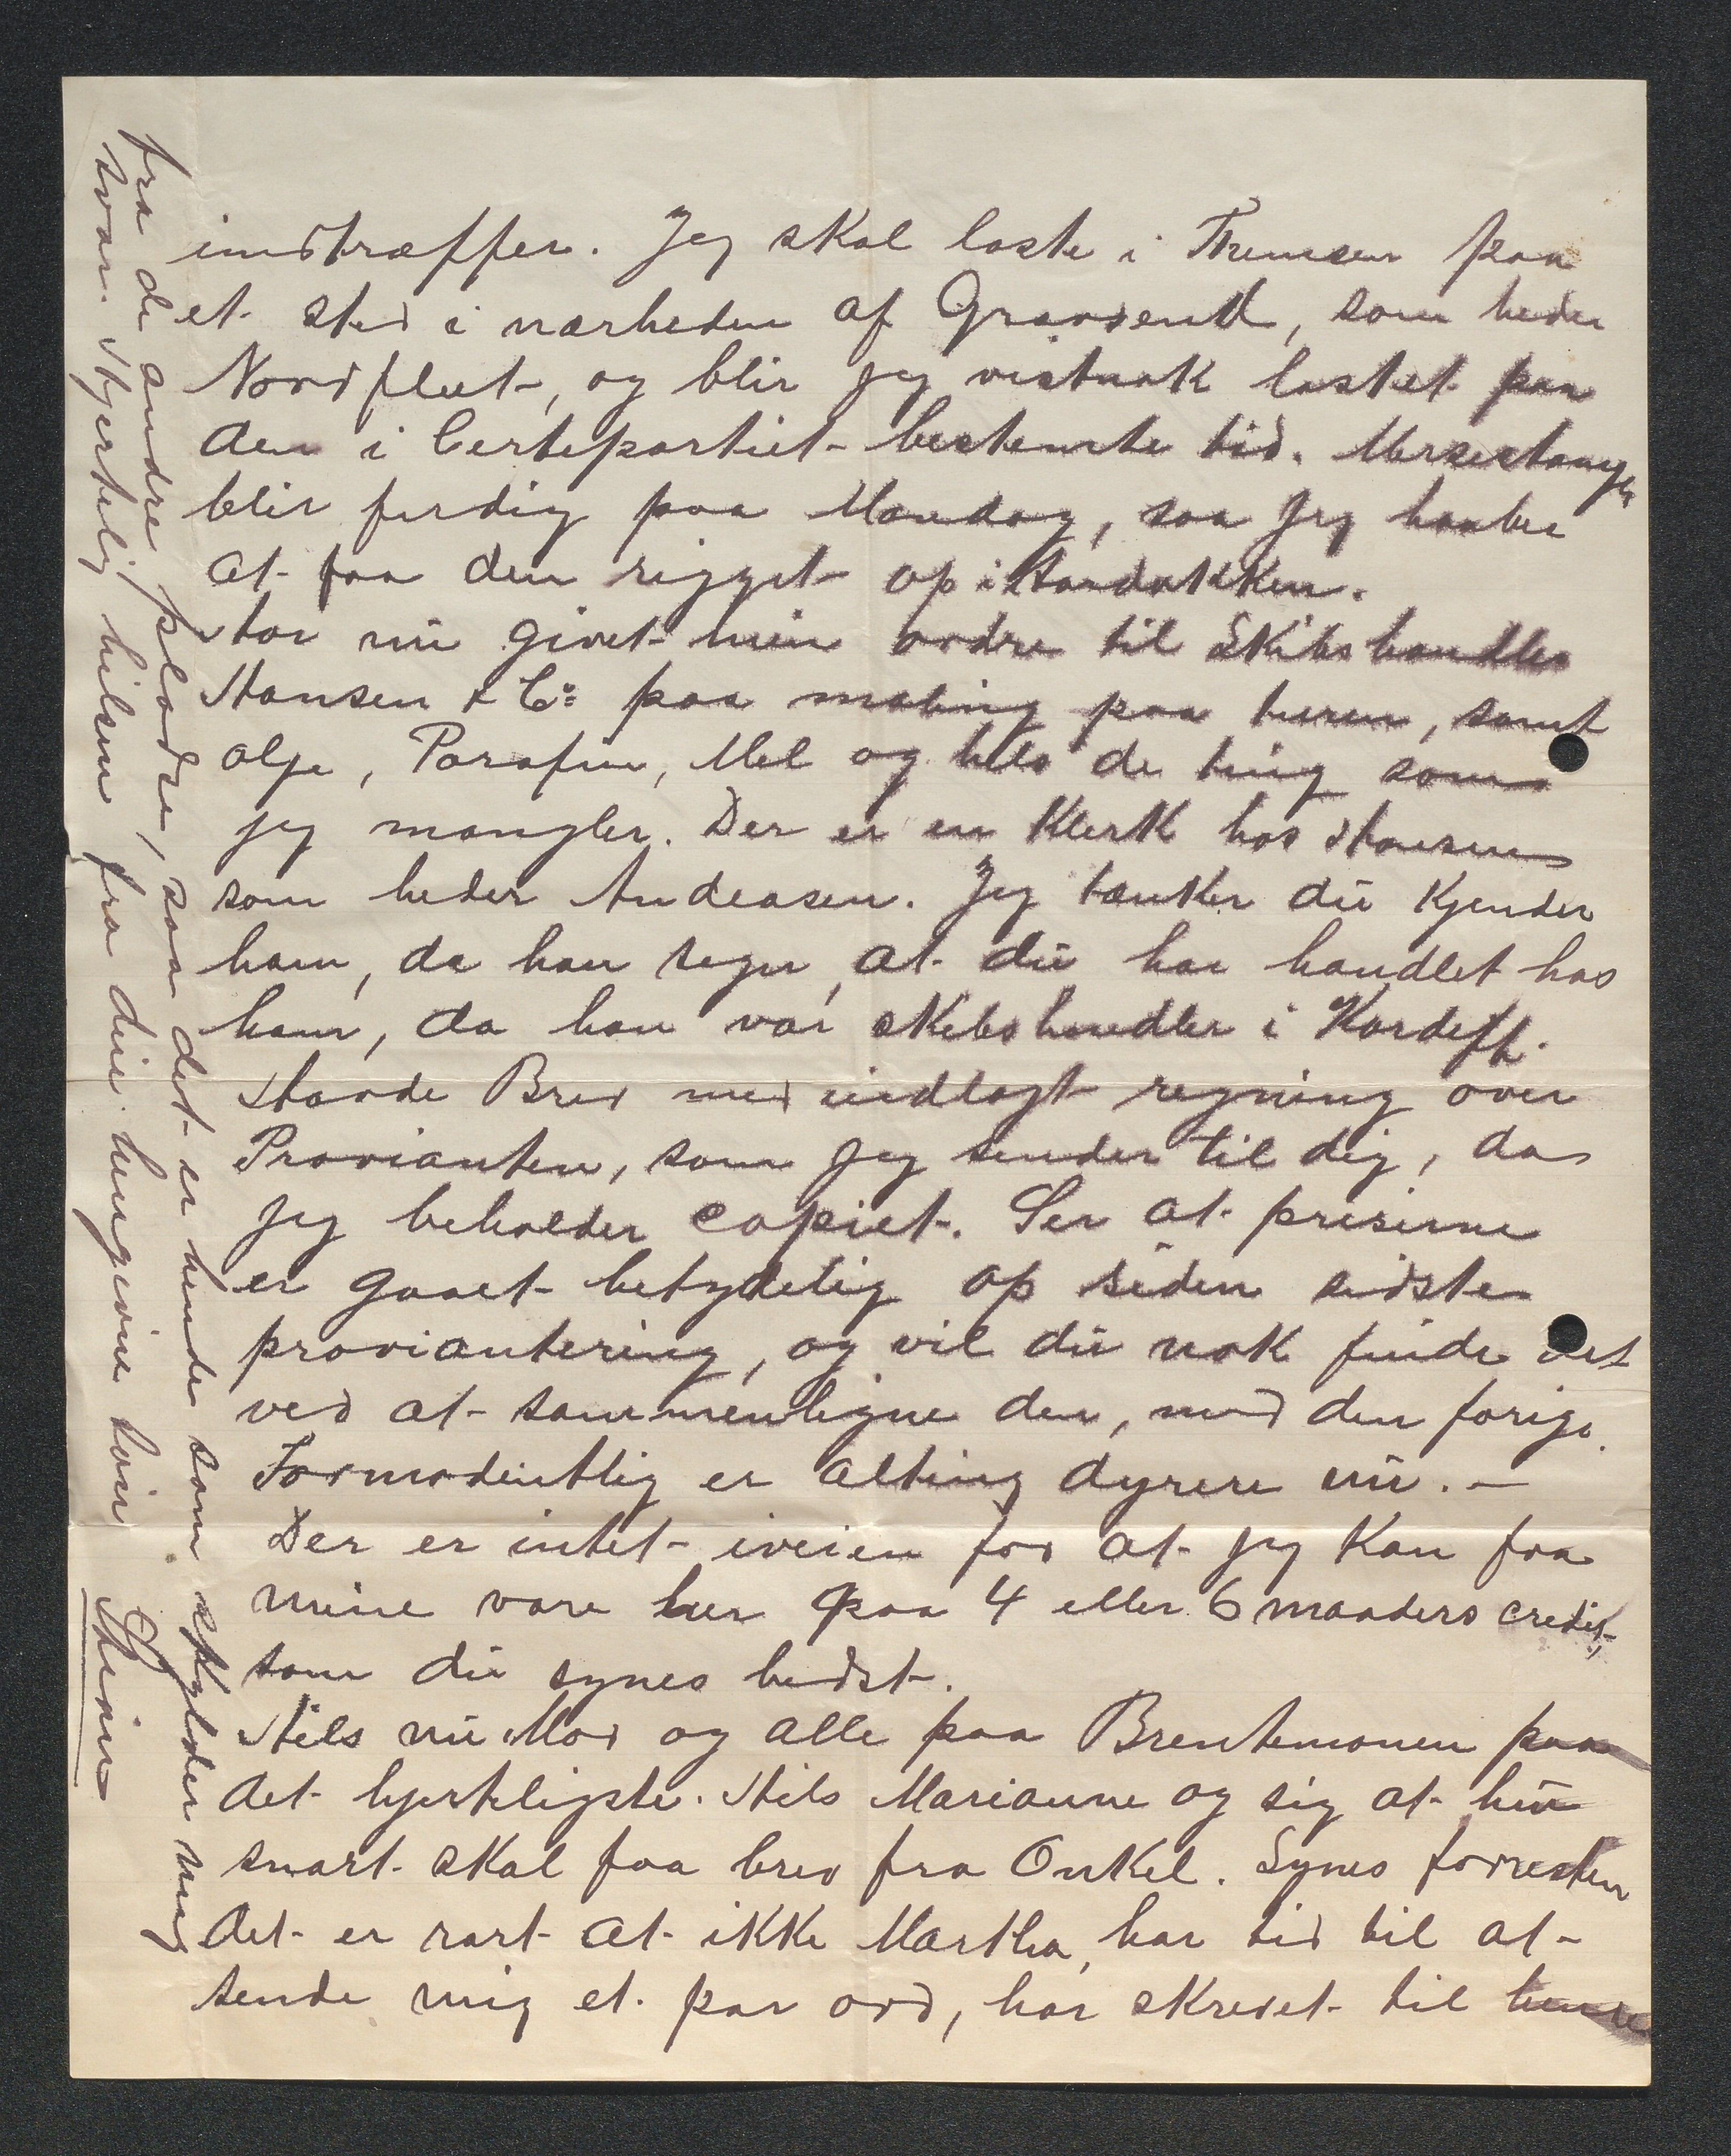 indtræffer. Jeg skal laste i Themsen paa
et sted i nærheden af Gravsend, som heder
Nordfleet, og blir jeg vistnok lastet paa
den i Certepartiet bestemte tid. Mersestangen
blir ferdig paa Mandag, saa jeg haaber
at faa den rigget op i Tørdokken.
Har nu givet min ordre til Skibshandler
Hansen & Co paa maling paa turen, samt
olje, Parafin, Mel og hels de ting som
jeg mangler. Der er en Klerk hos Hansen
som heder Andeasen. Jeg tænker du Kjender
ham, da han siger, at du har handlet hos
ham, da han var skibshandler i Kardeff.
Havde Brev med indlagt regning over
Provianten, som jeg sender til dig, da
jeg beholder copiet. Ser at priserne
er gaaet betydelig op siden sidste
proviantering, og vil du nok finde det
ved at sammenligne den, med den forige.
Formodentlig er alting dyrere nu. —
Der er intet iveien for at jeg Kan faa
mine vare her paa 4 eller 6 maaders credit,
som du synes bedst.
Hils nu Mor og alle paa Brentemoen paa
det hjerteligste. Hils Marianne og sig at hun
snart skal faa brev fra Onkel. Synes forresten
det er rart at ikke Martha, har tid til at
sende mig et par ord, har skrevet til hende
fra de andre pladse, saa det er hende som skylder mig
svar. Hjertelig hilsen fra din hengivne søn